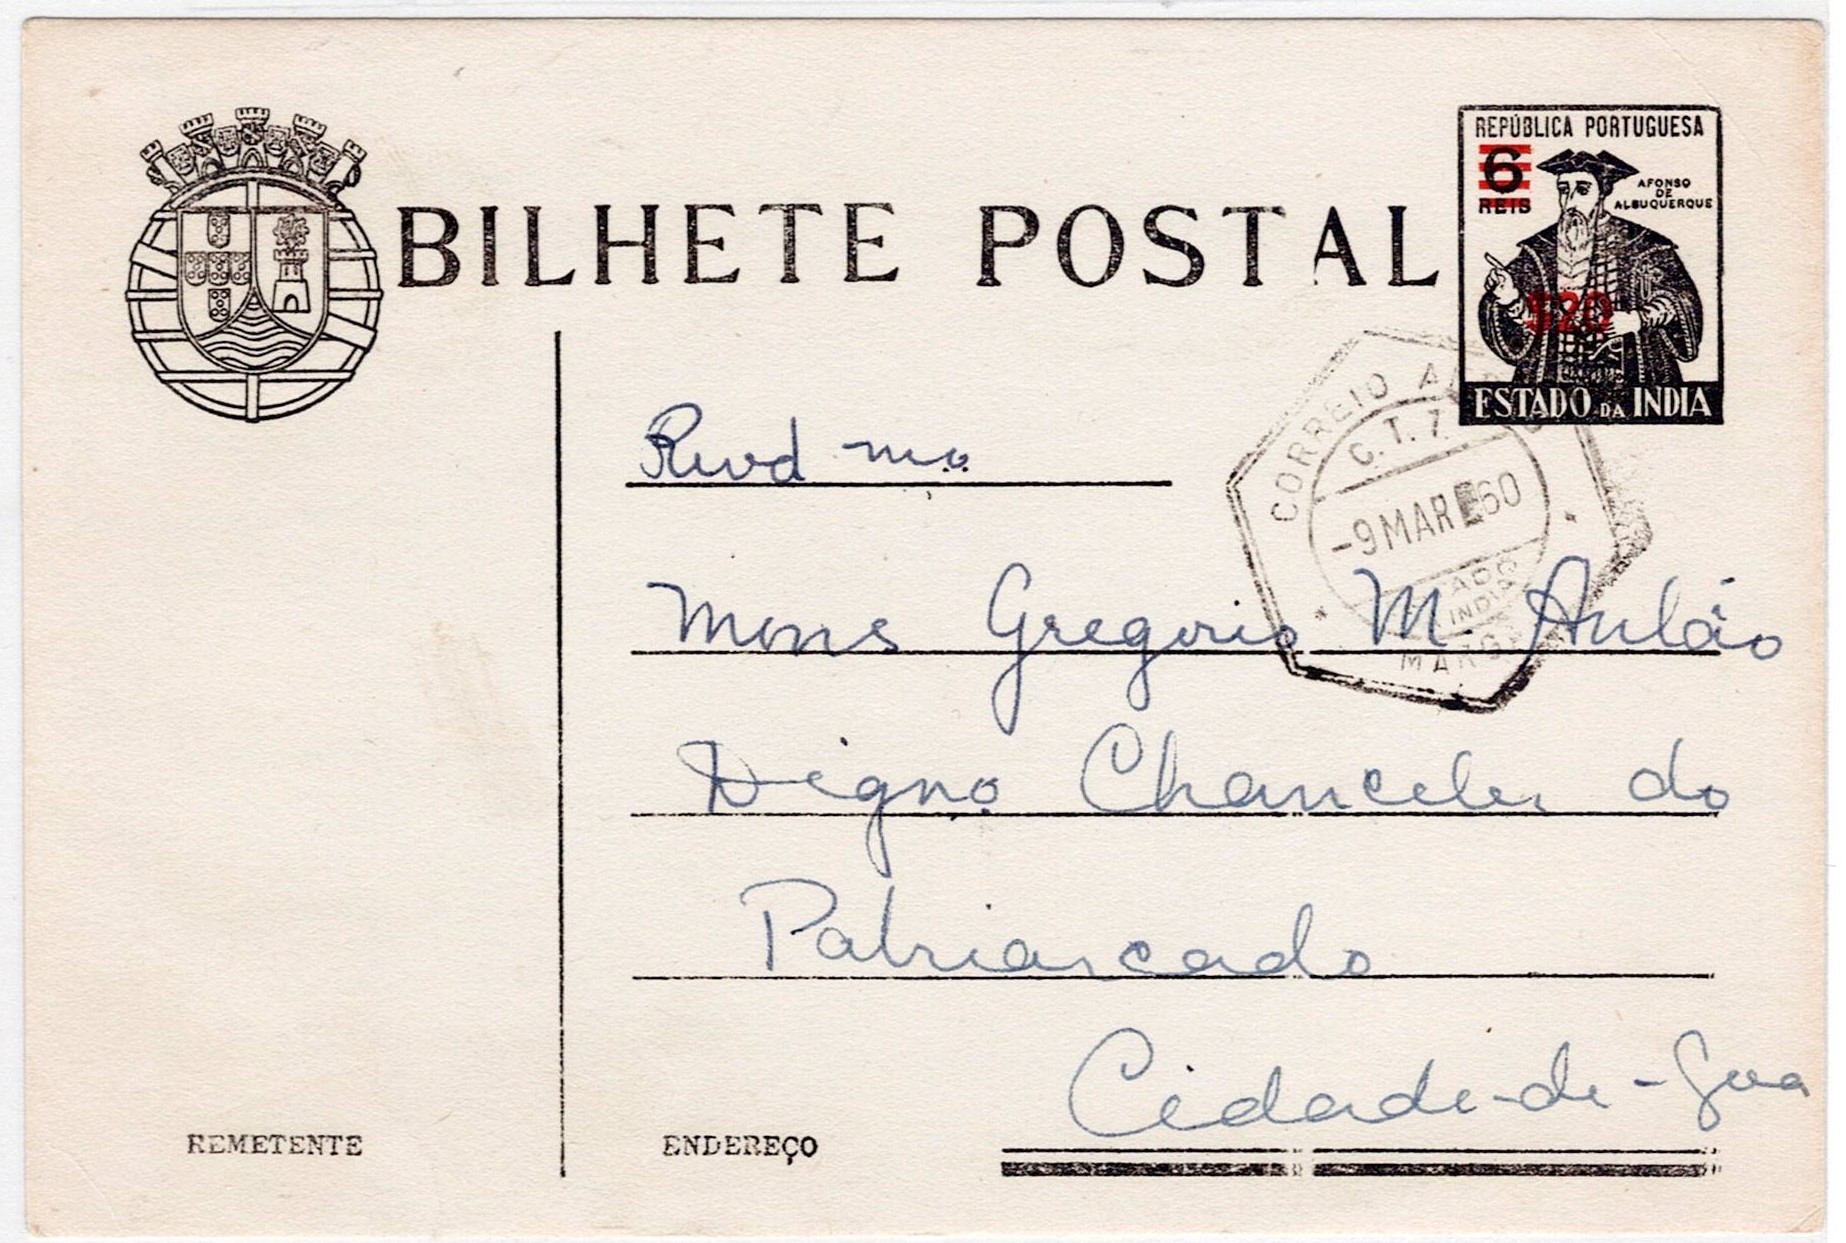 BILHETE POSTAL
REPÚBLICA PORTUGUESA
6
REIS
AFONSO
DE
ALBUQUERQUE
$20
ESTADO DA INDIA
CORREIO
C.T.T.
-9 MAR 60
INDIA
Revd mo
Mons Gregorio M. Antão
Digno Chanceler do
Patriarcado
Cidade-de-Goa
REMETENTE
ENDEREÇO